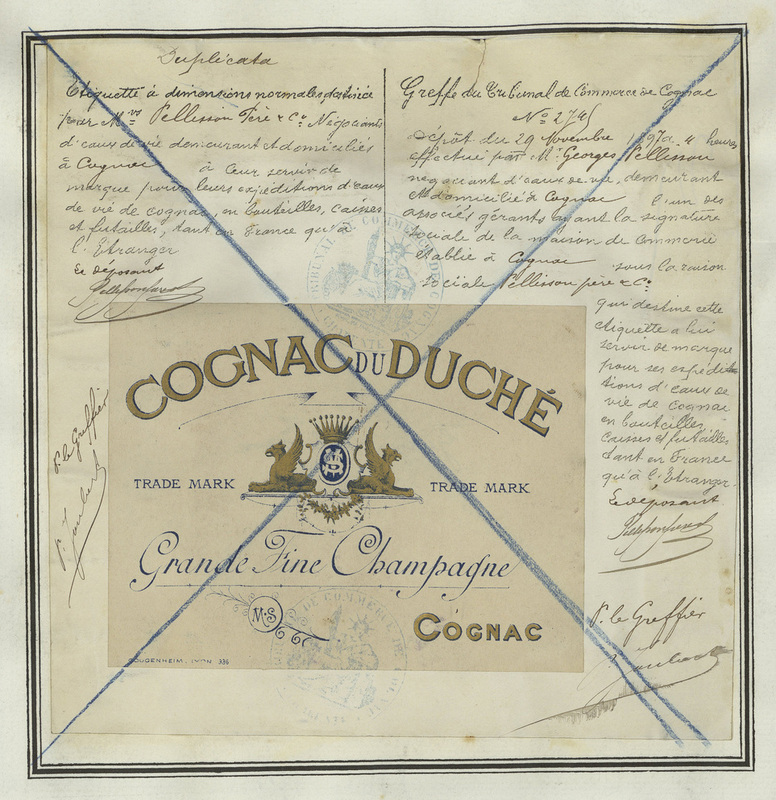 Duplicata
Etiquette à dimensions normales destinée
pour M.rs Pellisson Père & Cie Négociants
d'eaux de vie demeurant et domiciliés
à Cognac à leur servir de
marque pour leurs expéditions d'eaux
de vie de cognac, en bouteilles, caisses
et futailles, tant en France qu'à
l'Etranger
Le déposant
Greffe du Tribunal de Commerce de Cognac
No 274
Dépôt du 29 Novembre 1897 a 4 heures
effectué par Mr Georges Pellisson
négociant d'eaux de vie, demeurant
et domicilié à Cognac l'un des
associés gérants ayant la signature
sociale de la maison de commerce
établie à Cognac sous la raison
sociale Pellisson père & Co
qui destine cette
etiquette a lui
servir de marque
pour ses expédi
tions d'eaux de
vie de cognac
en bouteilles
caisses et futailles
tant en France
qu'à l'Etranger.
Le déposant
P. le Greffier
COGNAC DU DUCHÉ
TRADE MARK
TRADE MARK
Grande Fine Champagne
M.S
COGNAC
GOUGENHEIM, LYON 336
P. le Greffier
TRIBUNAL DE COMMERCE DE COGNAC